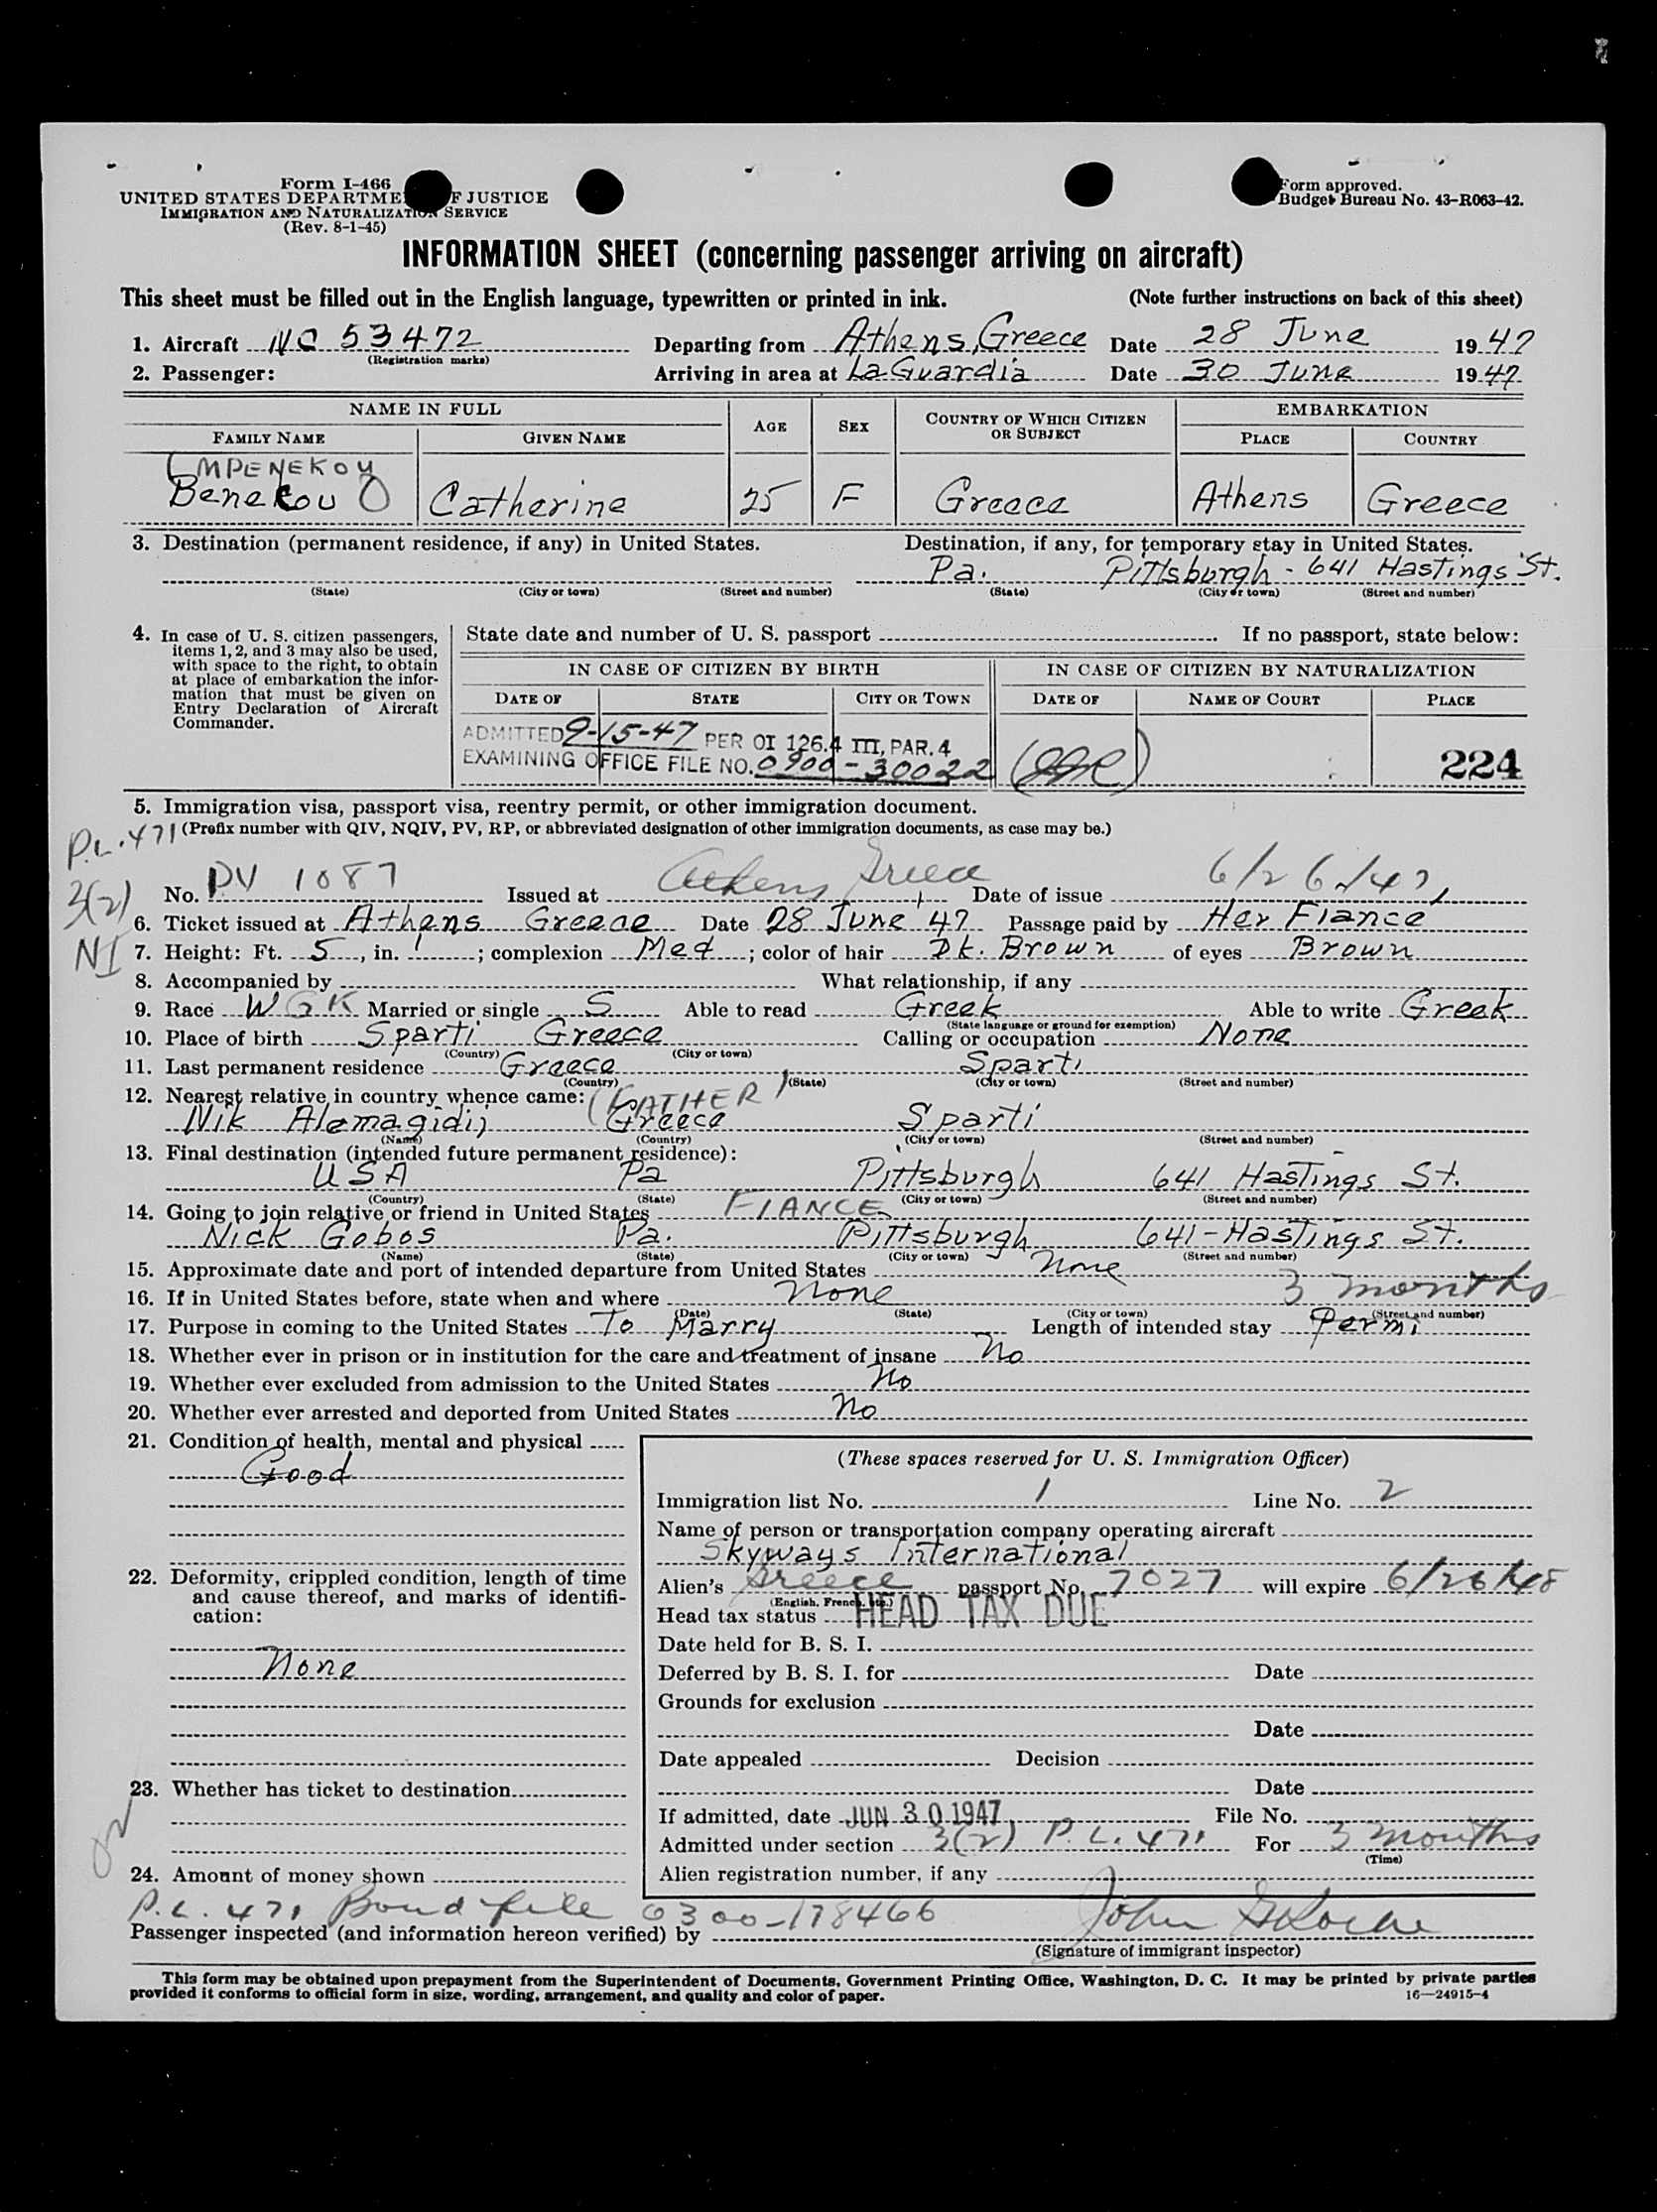 Form I-466
UNITED STATES DEPARTME F JUSTICE
IMMIGRATION AND NATURALIZATION SERVICE
(Rev. 8-1-45)
Form approved.
Budget Bureau No. 43-R063-42.
INFORMATION SHEET (concerning passenger arriving on aircraft)
This sheet must be filled out in the English language, typewritten or printed in ink. (Note further instructions on back of this sheet)
1. Aircraft NC 53472 Departing from Athens, Greece Date 28 June 1947
(Registration marks)
2. Passenger: Arriving in area at LaGuardia Date 30 June 1947
NAME IN FULL AGE SEX COUNTRY OF WHICH CITIZEN OR SUBJECT EMBARKATION
FAMILY NAME GIVEN NAME PLACE COUNTRY
MPENEKOY
Benekou Catherine 25 F Greece Athens Greece
3. Destination (permanent residence, if any) in United States. Destination, if any, for temporary stay in United States.
Pa. Pittsburgh - 641 Hastings St.
(State) (City or town) (Street and number) (State) (City or town) (Street and number)
4. In case of U. S. citizen passengers, items 1, 2, and 3 may also be used, with space to the right, to obtain at place of embarkation the information that must be given on Entry Declaration of Aircraft Commander.
State date and number of U. S. passport . If no passport, state below:
IN CASE OF CITIZEN BY BIRTH IN CASE OF CITIZEN BY NATURALIZATION
DATE OF STATE CITY OR TOWN DATE OF NAME OF COURT PLACE
ADMITTED 9-15-47 PER OI 126.4 III, PAR. 4
EXAMINING OFFICE FILE NO. 0900-30022 224
5. Immigration visa, passport visa, reentry permit, or other immigration document.
P.L. 471 (Prefix number with QIV, NQIV, PV, RP, or abbreviated designation of other immigration documents, as case may be.)
3(2) No. PV 1087 Issued at Athens Greece Date of issue 6/26/47
6. Ticket issued at Athens Greece Date 28 June 47 Passage paid by Her Fiance
NI 7. Height: Ft. 5, in. 1; complexion Med; color of hair Dk. Brown of eyes Brown
8. Accompanied by What relationship, if any
9. Race W GK Married or single S Able to read Greek Able to write Greek
(State language or ground for exemption)
10. Place of birth Sparti Greece Calling or occupation None
(Country) (City or town)
11. Last permanent residence Greece Sparti
(Country) (State) (City or town) (Street and number)
12. Nearest relative in country whence came: (FATHER)
Nik Alemagidij Greece Sparti
(Name) (Country) (City or town) (Street and number)
13. Final destination (intended future permanent residence):
USA Pa Pittsburgh 641 Hastings St.
(Country) (State) (City or town) (Street and number)
14. Going to join relative or friend in United States FIANCE
Nick Gobos Pa. Pittsburgh 641-Hastings St.
(Name) (State) (City or town) (Street and number)
15. Approximate date and port of intended departure from United States None
16. If in United States before, state when and where None 3 months
(Date) (State) (City or town) (Street and number)
17. Purpose in coming to the United States To Marry Length of intended stay Perm.
18. Whether ever in prison or in institution for the care and treatment of insane No
19. Whether ever excluded from admission to the United States No
20. Whether ever arrested and deported from United States No
21. Condition of health, mental and physical
Good
22. Deformity, crippled condition, length of time and cause thereof, and marks of identification:
None
23. Whether has ticket to destination
24. Amount of money shown
(These spaces reserved for U. S. Immigration Officer)
Immigration list No. 1 Line No. 2
Name of person or transportation company operating aircraft
Skyways International
Alien's Greece passport No. 7027 will expire 6/26/48
(English, French, etc.)
Head tax status HEAD TAX DUE
Date held for B. S. I.
Deferred by B. S. I. for Date
Grounds for exclusion
Date
Date appealed Decision
Date
If admitted, date JUN 30 1947 File No.
Admitted under section 3(2) P.L. 471 For 3 months
(Time)
Alien registration number, if any
P.L. 471 Bond file 0300-178466
Passenger inspected (and information hereon verified) by
(Signature of immigrant inspector)
This form may be obtained upon prepayment from the Superintendent of Documents, Government Printing Office, Washington, D. C. It may be printed by private parties
provided it conforms to official form in size, wording, arrangement, and quality and color of paper. 16—24915-4